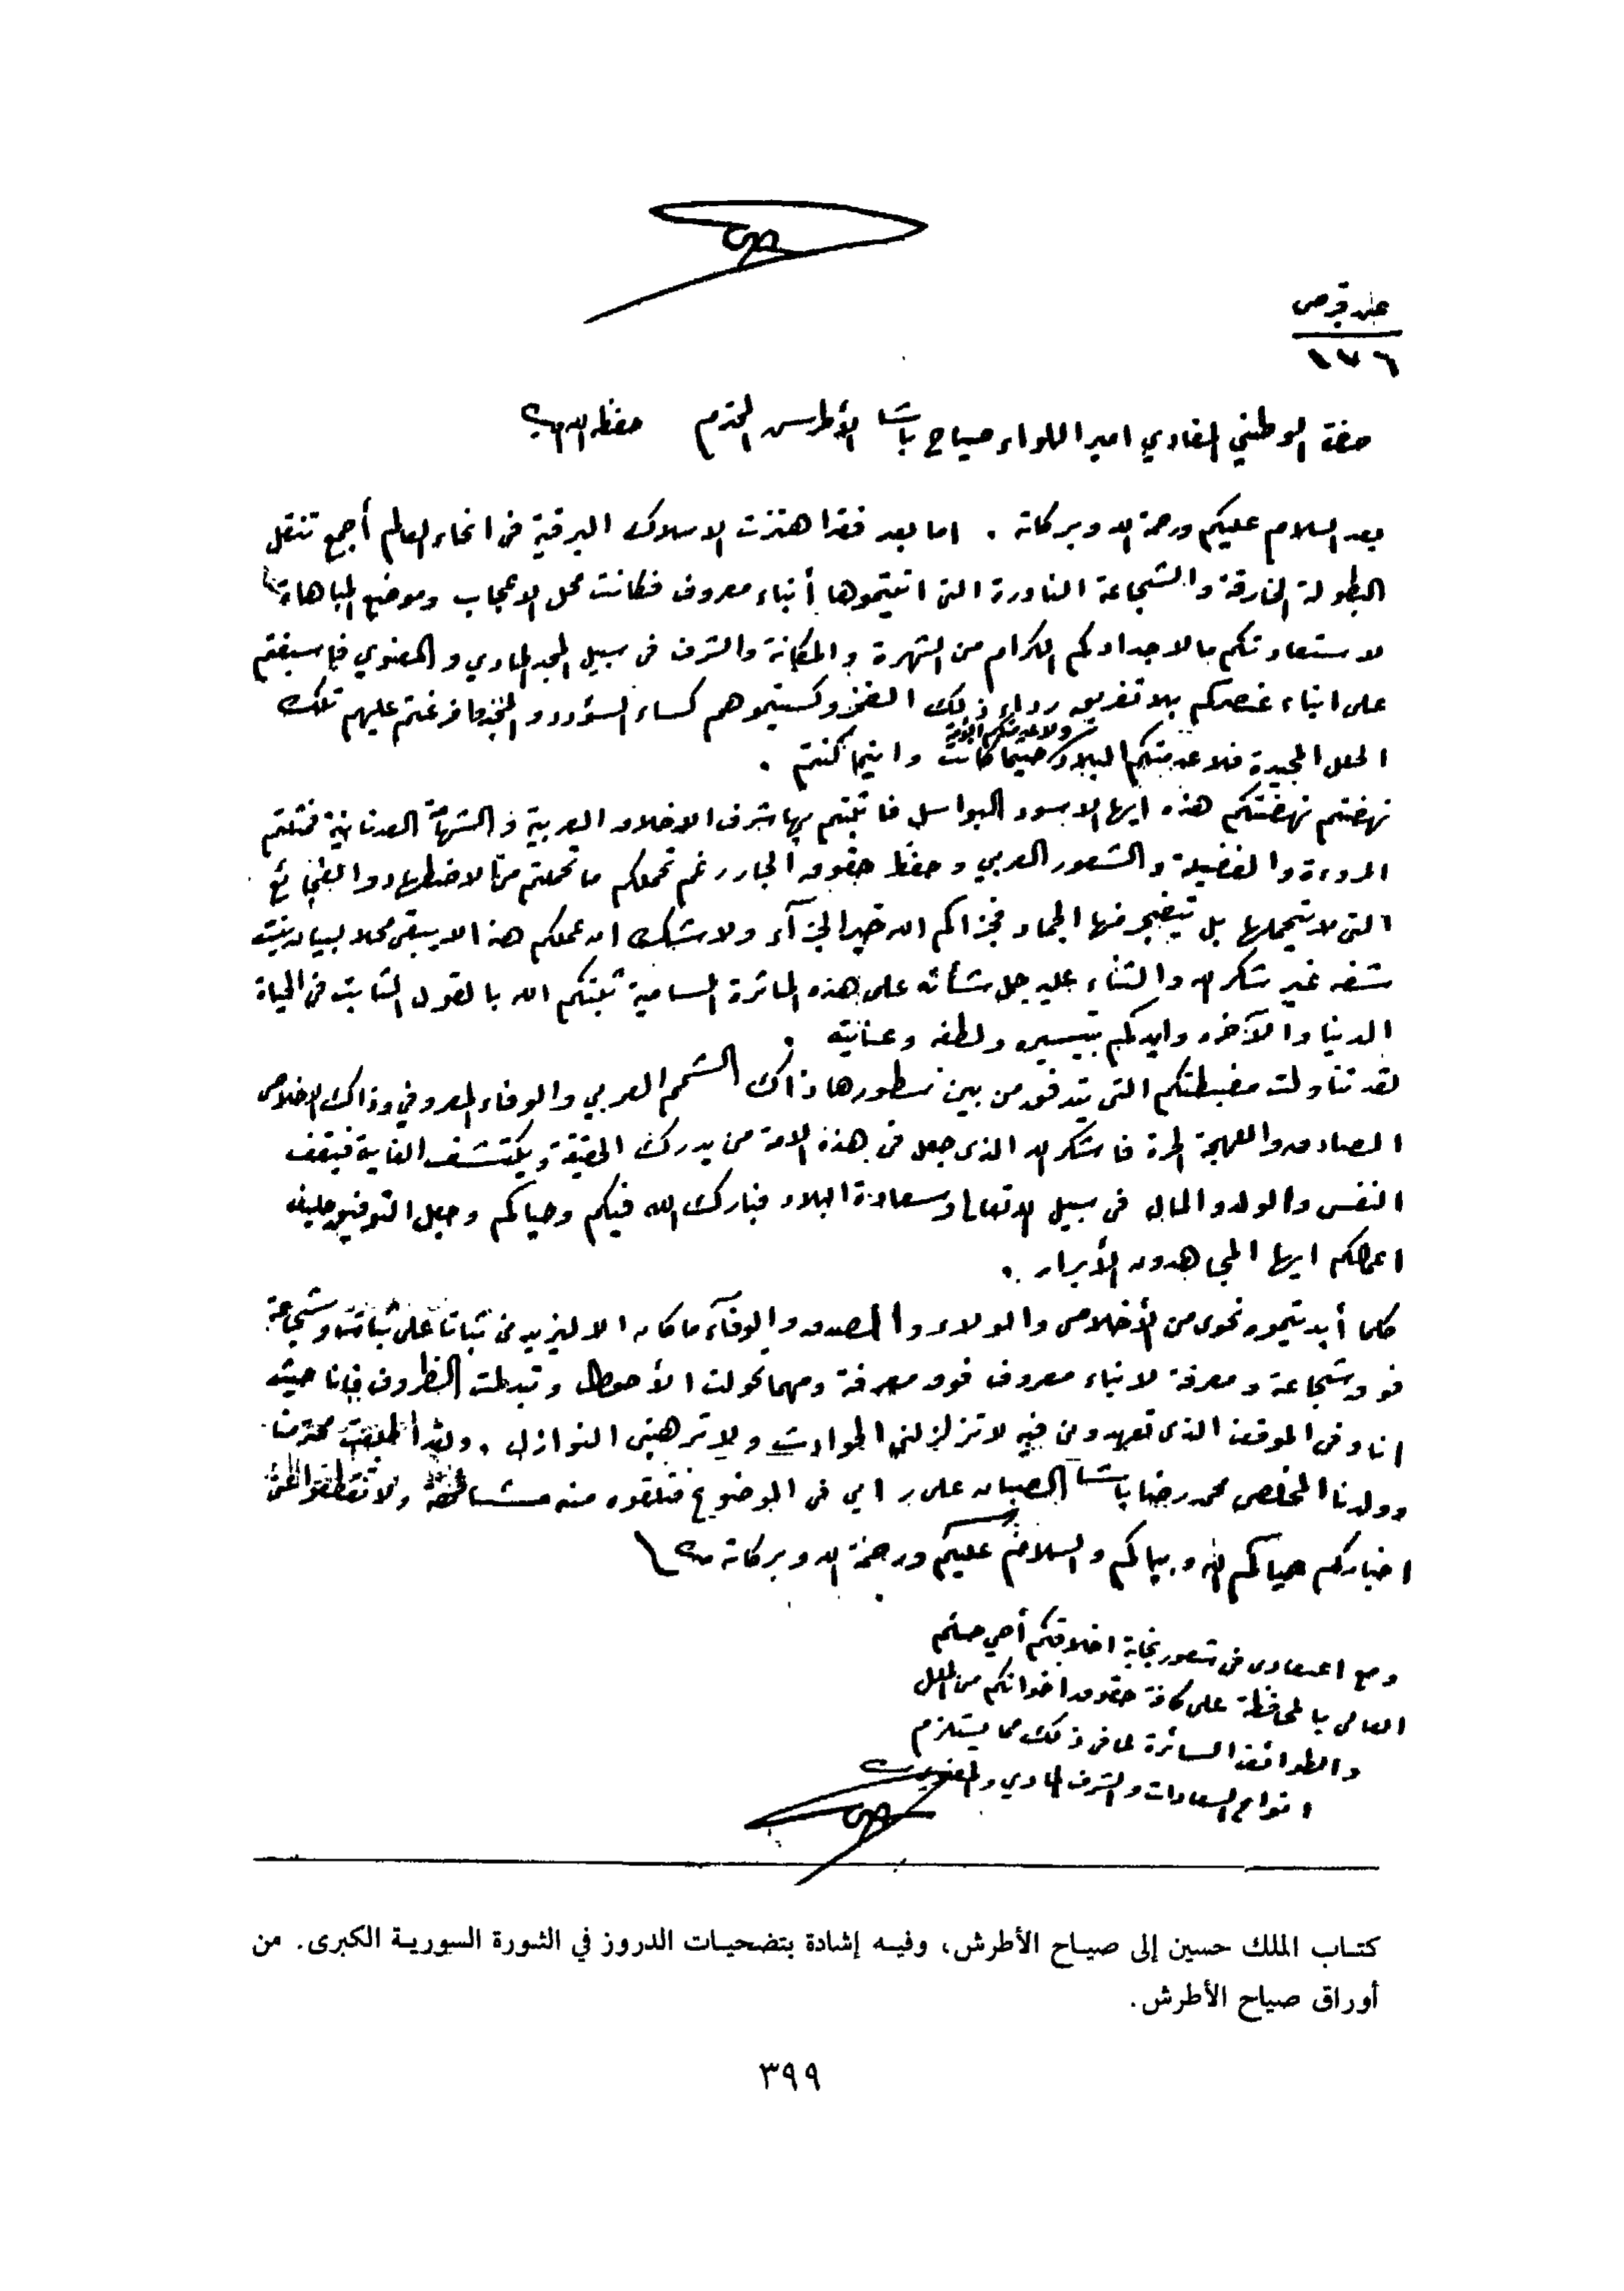 عدد قبرص
١٧٦
حضرة الوطني الفادي امير اللواء صياح باشا الأطرش المحترم حفظه الله
بعد السلام عليكم ورحمة الله وبركاته . اما بعد فقد اهتزت الاسلاك البرقية في انحاء العالم أجمع تنقل
البطولة الخارقة والشجاعة النادرة التي اتيتموها أبناء معروف فكانت محل الاعجاب وموضع المباهاة
لاستعادتكم ما لاجدادكم الكرام من الشهرة والمكانة والشرف في سبيل المجد المادي والمعنوي فاسبغتم
على ابناء عنصركم بلا تفريق رداء ذلك الفخر وكسيتموهم كساء السؤدد والمجد وافرغتم عليهم تلك
الحلل المجيدة فلا عدمتكم البلاد ولا عدمتكم حيثما كانت واينما كنتم .
نهضتم نهضتكم هذه ايها الاسود البواسل فاثبتم بها شرف الاخلاق العربية والشهامة العدنانية فمثلتم
المروءة والفضيلة والشعور العربي وحفظ حقوق الجار رغم تحملكم ما تحملتم من الاضطهاد والفجائع
التي لا تتحملها بل تنفجر منها الجماد فجزاكم الله خير الجزآء ولا شك ان عملكم هذا لا يبقي محلا لبيان
شفه غير شكر الله والثناء عليه جل شأنه على هذه المأثرة السامية ثبتكم الله بالقول الثابت في الحياة
الدنيا والآخره وايدكم بتيسيره ولطفه وعنايته .
لقد تناولت مضبطتكم التي يتدفق من بين سطورها ذاك الشمم العربي والوفاء المعروفي وذاك الاخلاص
الصادق واللهجة الحرة فاشكر الله الذي جعل في هذه الامة من يدرك الحقيقة ويكتشف الغاية فيقف
النفس والولد والمال في سبيل الله تعالى وسعادة البلاد فبارك الله فيكم وحياكم وجعل التوفيق حليف
اعمالكم ايها المجاهدون الأبرار .
كلما أبديتموه نحوي من الأخلاص والولاء والصدق والوفآء ما كان الا ليزيدني ثباتا على ثبات وشجاعة
فوق شجاعة ومعرفة لابناء معروف فوق معرفة ومهما تحولت الأحوال وتبدلت الظروف فانا حيث
انا وفي الموقف الذي تعهدونني فيه لا تزلزلني الحوادث ولا ترهبني النوازل . ولقد أطلعت محترمنا
وولدنا المخلص محمد رضا باشا الصبان على رايي في الموضوع فتلقوه منه مشافهة ولا تقطعوا عني
اخباركم حياكم الله وبياكم والسلام عليكم ورحمة الله وبركاته
ومع اعتمادي في شعور نجابة اخلاقكم أحي حسكم
العالي بالمحافظة على كافة حقوق اخوانكم من الملل
والطوائف السائرة لما في ذلك مما يستلزم
انواع السعادات والشرف المادي والمعنوي
كتاب الملك حسين إلى صياح الأطرش، وفيه إشادة بتضحيات الدروز في الثورة السورية الكبرى. من
أوراق صياح الأطرش.
٣٩٩